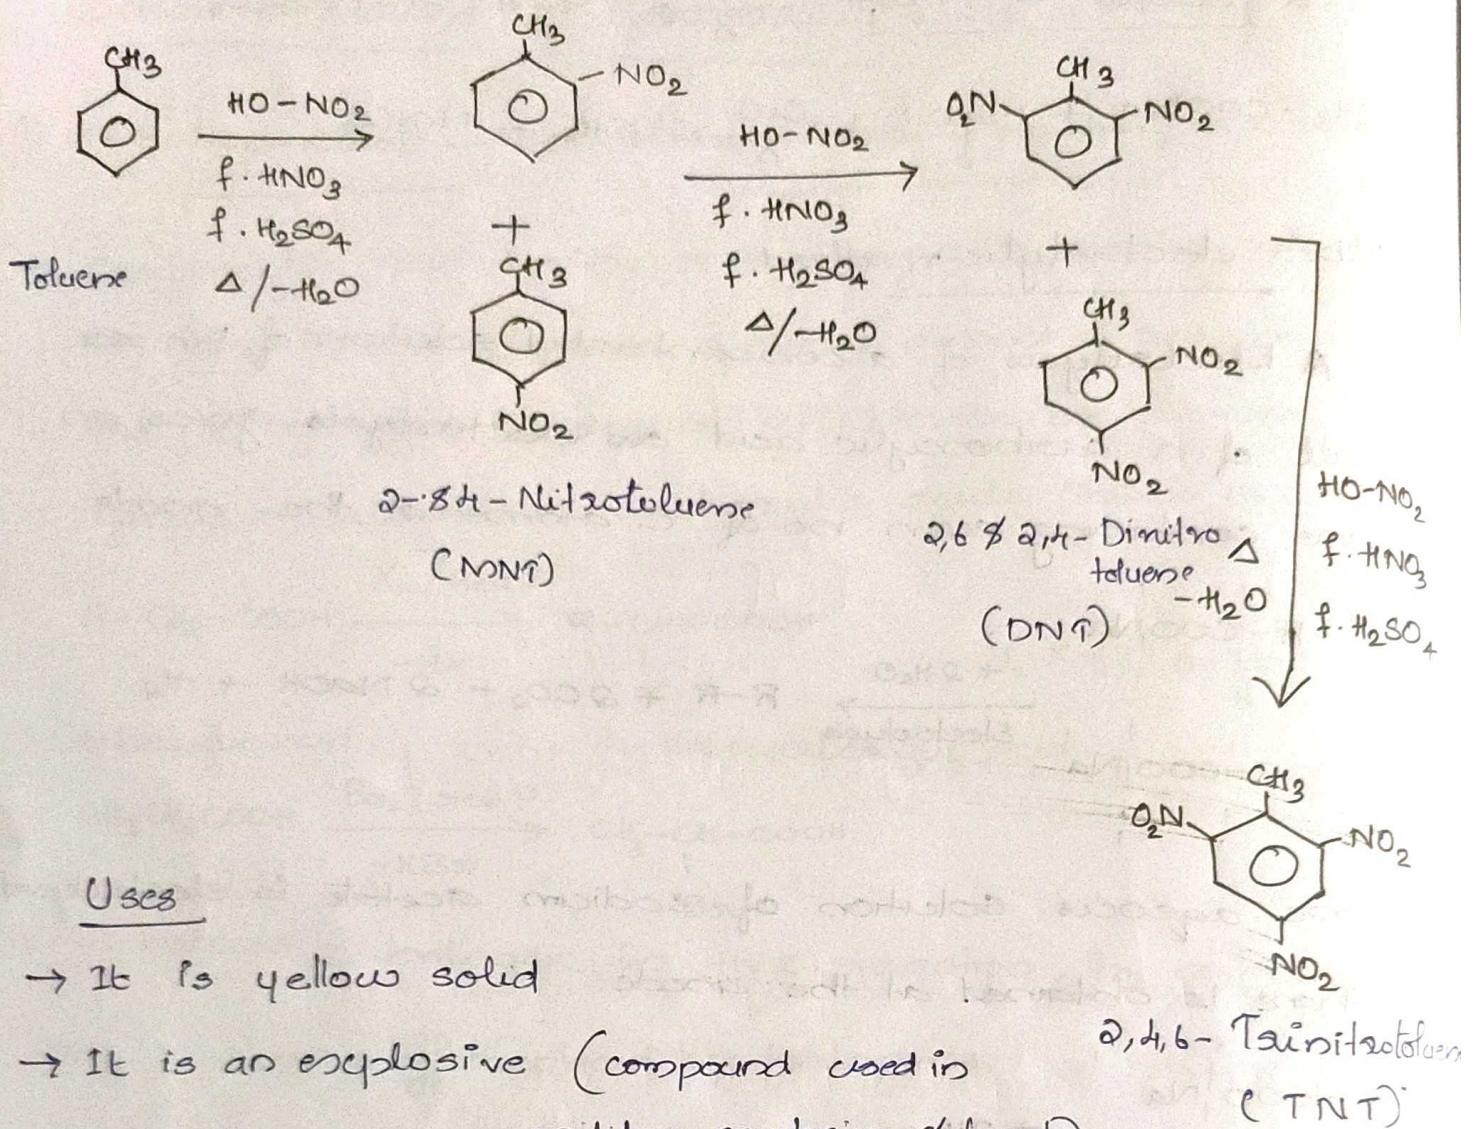 CH3
HO-NO2
f. HNO3
f. H2SO4
Δ/-H2O
Toluene
CH3
NO2
+
CH3
NO2
2- & 4- Nitrotoluene
(MNT)
HO-NO2
f. HNO3
f. H2SO4
Δ/-H2O
CH3
O2N
NO2
+
CH3
NO2
NO2
2,6 & 2,4- Dinitro
toluene
(DNT)
Δ
-H2O
HO-NO2
f. HNO3
f. H2SO4
CH3
O2N
NO2
NO2
2,4,6- Trinitrotoluen
(TNT)
Uses
→ It is yellow solid
→ It is an explosive (compound used in